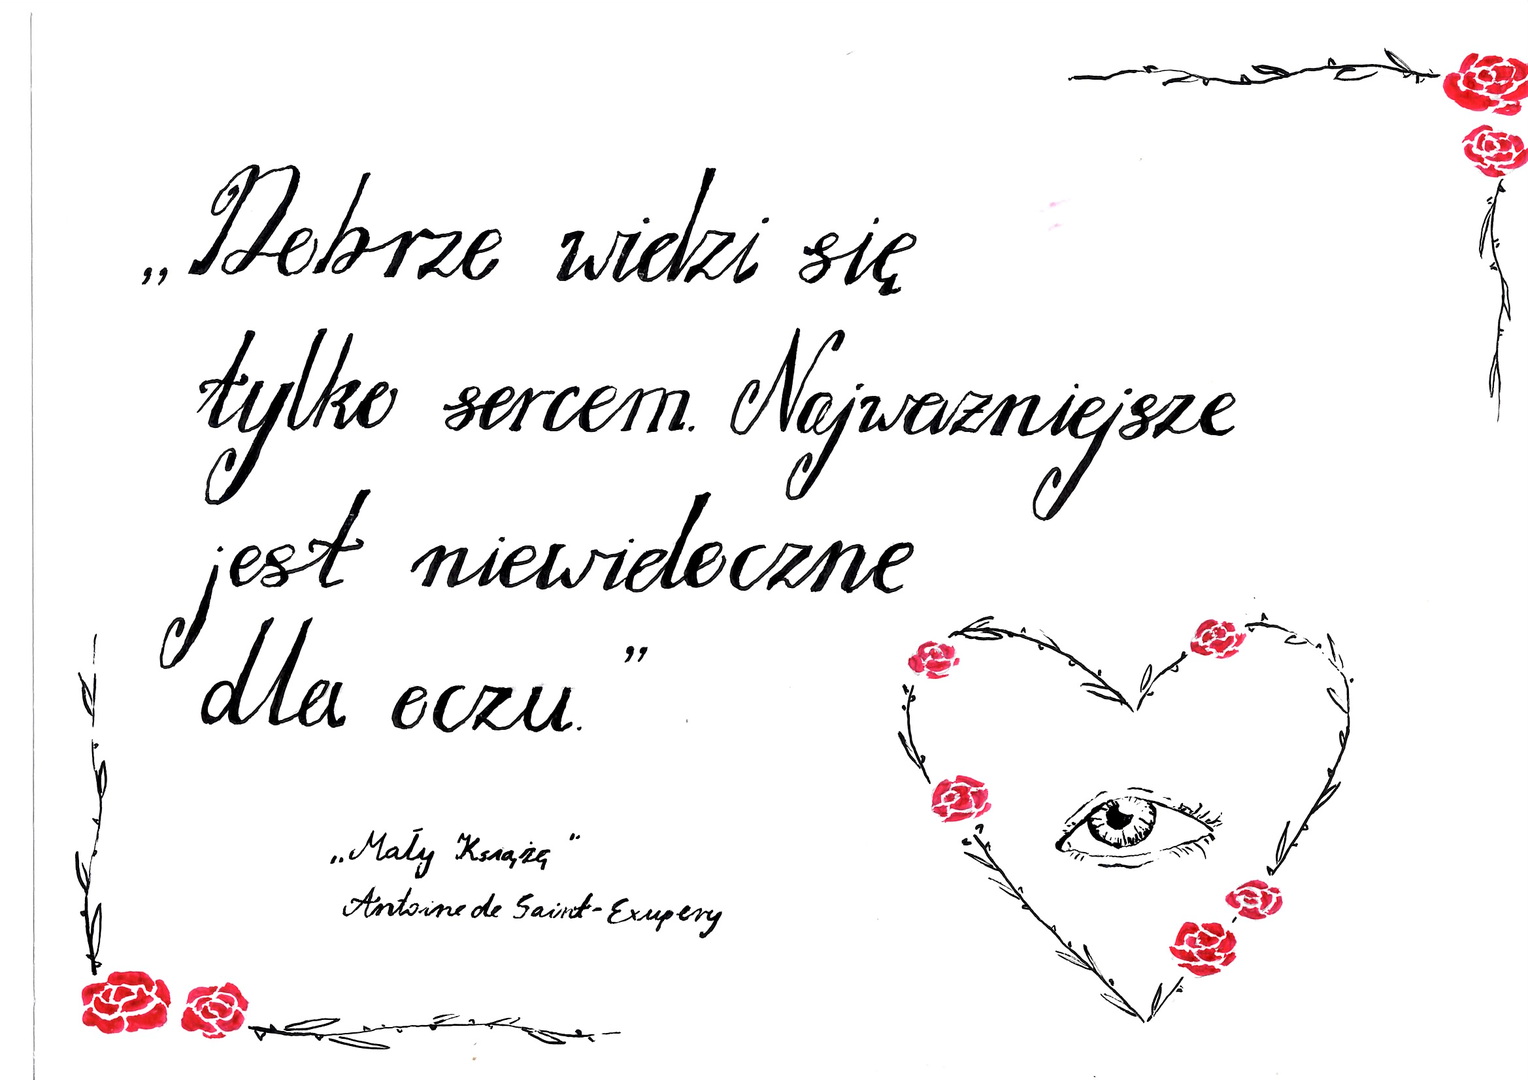 „Dobrze widzi się
tylko sercem. Najwazniejsze
jest niewidoczne
dla oczu.”
„Mały Książę”
Antoine de Saint-Exupery